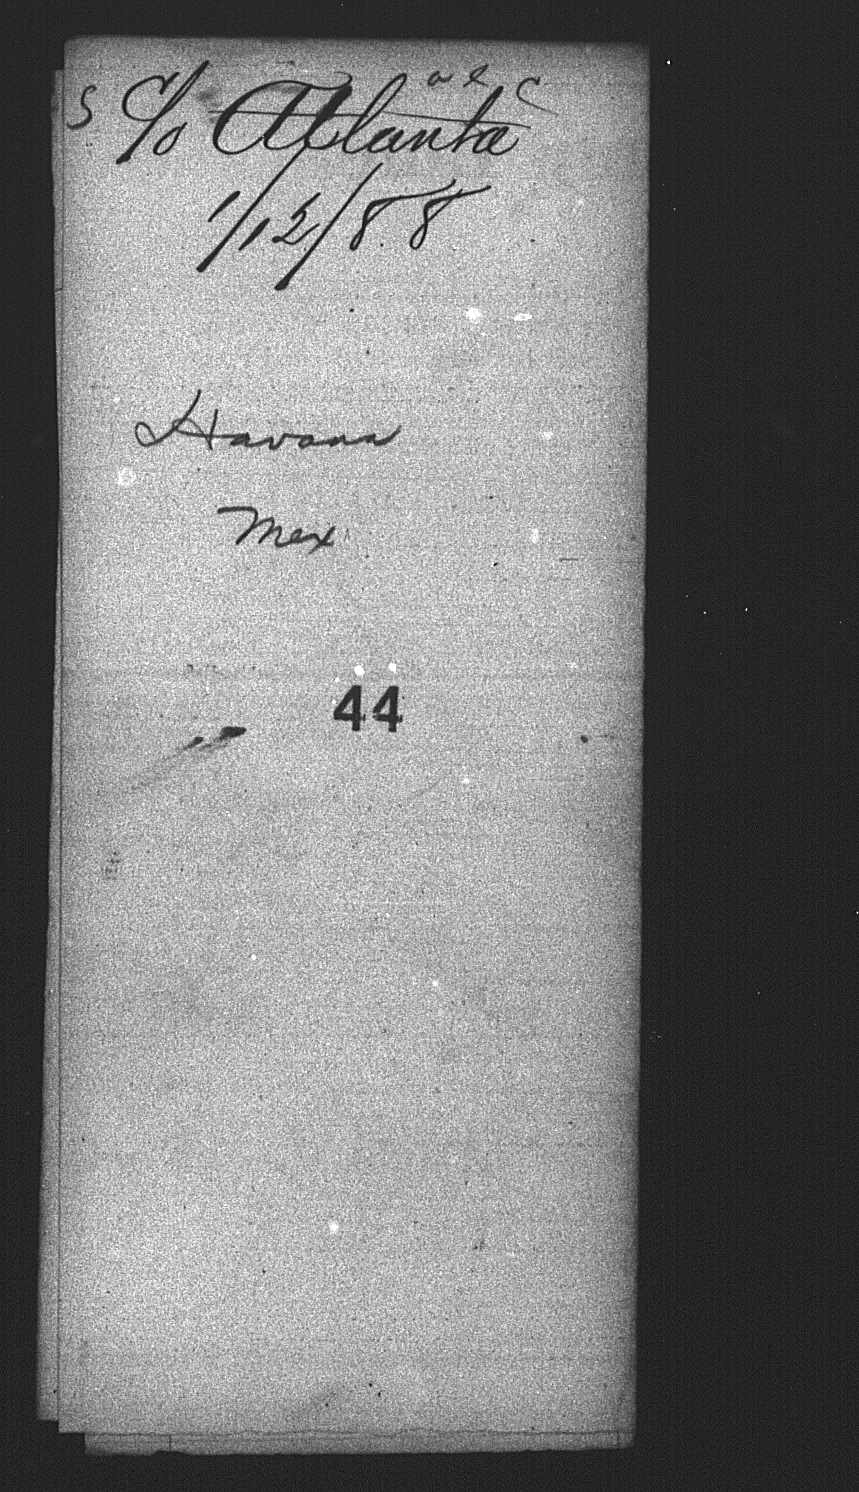 S C/o Atlanta
1/12/88
Havana
Mex
44